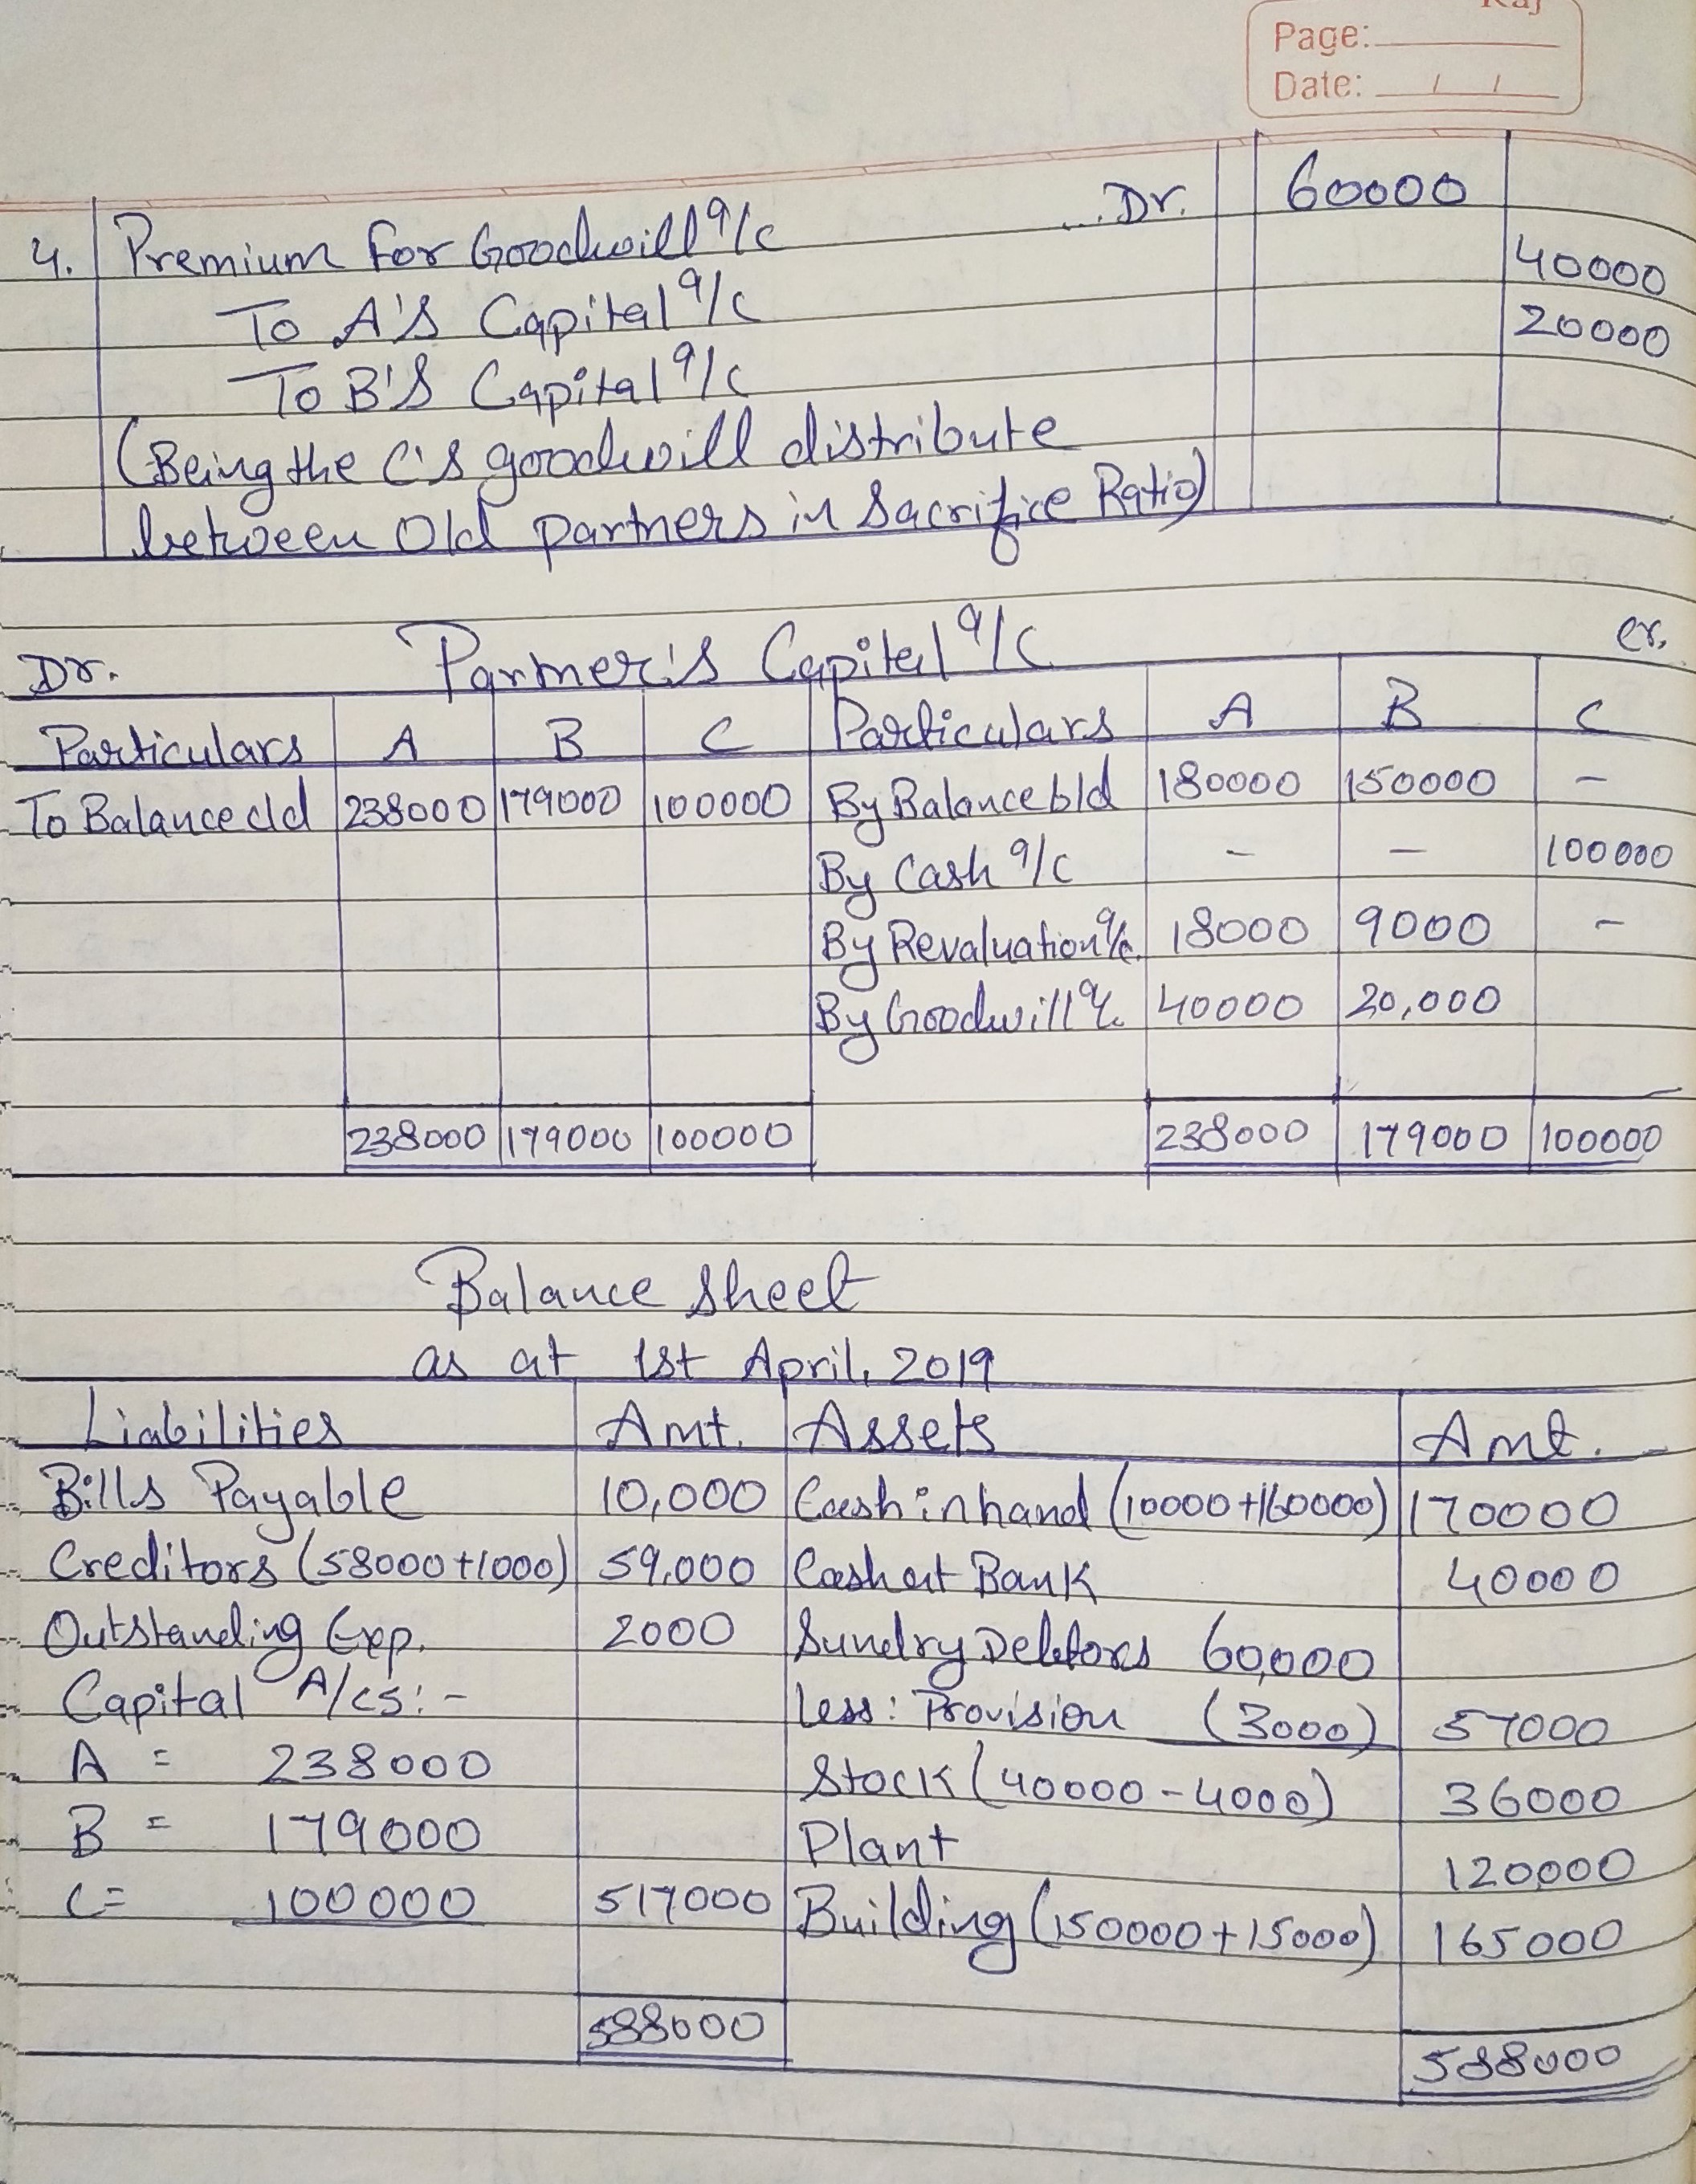 Raj
Page:
Date: / /
4. Premium for Goodwill a/c ... Dr. 60000
To A's Capital a/c 40000
To B's Capital a/c 20000
(Being the C's goodwill distribute
between Old partners in Sacrifice Ratio)
Dr. Partner's Capital a/c Cr.
Particulars A B C Particulars A B C
To Balance c/d 238000 179000 100000 By Balance b/d 180000 150000 -
By Cash a/c - - 100000
By Revaluation a/c. 18000 9000 -
By Goodwill a/c. 40000 20,000
238000 179000 100000 238000 179000 100000
Balance Sheet
as at 1st April, 2019
Liabilities Amt. Assets Amt.
Bills Payable 10,000 Cash in hand (10000+160000) 170000
Creditors (58000+1000) 59,000 Cash at Bank 40000
Outstanding Exp. 2000 Sundry Debtors 60,000
Capital A/cs:- Less: Provision (3000) 57000
A = 238000 Stock (40000-4000) 36000
B = 179000 Plant 120,000
C = 100000 517000 Building (150000+15000) 165000
588000 588000